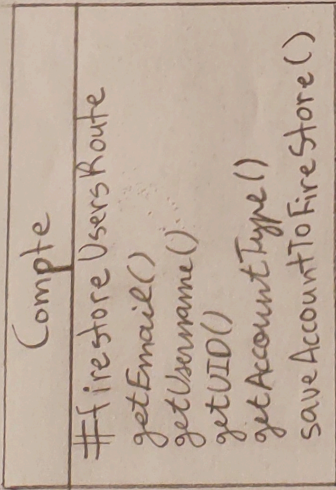 Compte
#firestoreUsersRoute
getEmail()
getUsername()
getUID()
getAccountType()
saveAccountToFireStore()